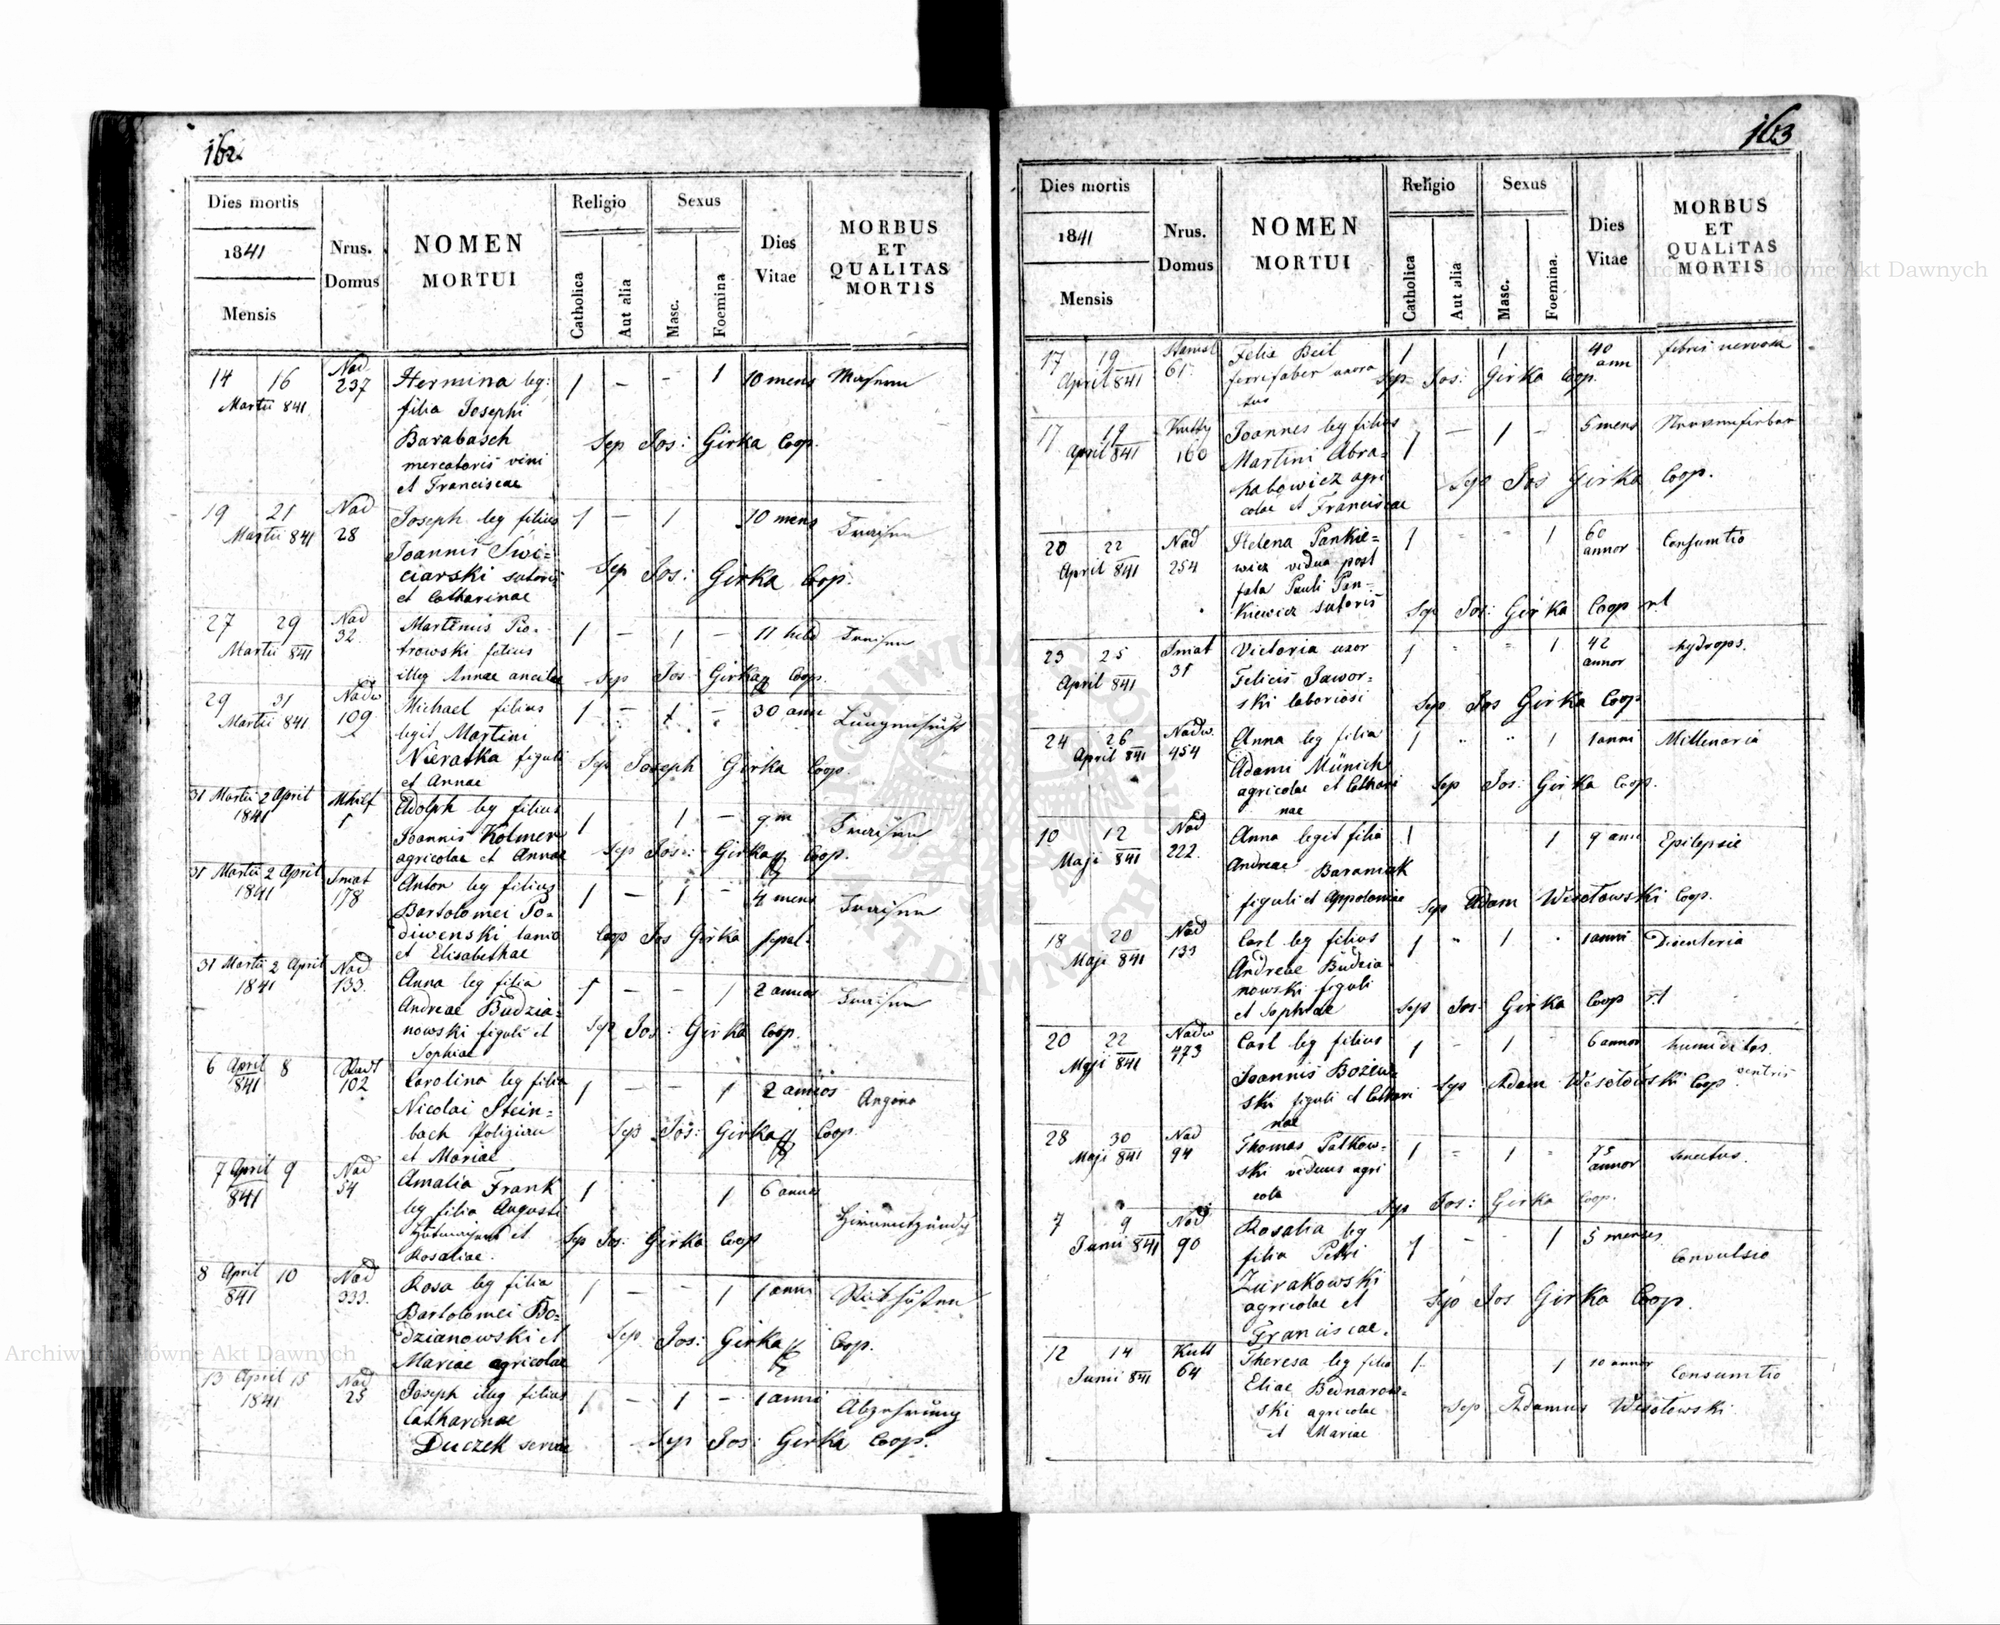 162.
Dies mortis
1841
Mensis
Nrus. Domus
NOMEN MORTUI
Religio
Catholica
Aut alia
Sexus
Masc.
Foemina
Dies Vitae
MORBUS ET QUALITAS MORTIS
14 16 Nad 237 Hermina leg: 1 – – 1 10 mens Masern
Martii 841 filia Josephi
Barabasch Sep Jos: Girka Coop.
mercatoris vini
et Franciscae
19 21 Nad Joseph leg filius 1 – 1 10 mens Fraisen
Martii 841 28 Joannis Swi=
ciarski sutoris Sep Jos: Girka Coop.
et Catharinae
27 29 Nad 32. Martinus Pio- 1 – 1 – 11 hebd Fraisen
Martii 841 trowski filius
illeg Annae ancillae Sep Jos: Girka Coop.
29 31 Nadw 109 Michael filius 1 – 1 – 30 ann Lungensucht
Martii 841 legit Martini
Nieratka figuli Sep Joseph Girka Coop.
et Annae
31 Martii 2 April 1841 Adolph leg filius 1 1 – 9 m Fraisen
Joannis Kolmer
agricolae et Annae Sep Jos: Girka Coop.
31 Martii 2 April 1841 Smat 178 Anton leg filius 1 – 1 – 4 mens Fraisen
Bartolomei Po-
diwenski Coop Jos Girka sepel.
et Elisabethae
31 Martii 2 April 1841 Nad 133. Anna leg filia 1 – – 1 2 annos Fraisen
Andreae Budzia-
nowski figuli et Sep Jos: Girka Coop.
Sophiae
6 April 841 8 102 Carolina leg filia 1 – – 1 2 annos Angina
Nicolai Stein=
bach Sep Jos: Girka Coop.
et Mariae
7 April 841 9 Nad 54 Amalia Frank 1 1 6 annos
leg filia Augusti
et Sep Jos: Girka Coop
Rosaliae.
8 April 841 10 Nad 333. Rosa leg filia 1 – – 1 1 anni
Bartolomei Bo-
dzianowski et Sep Jos: Girka Coop.
Mariae agricolae
13 April 15 1841 Nad 25 Joseph illeg filius 1 – 1 – 1 anni Abzehrung
Catharinae
Duczek Sep Jos: Girka Coop.
163
Dies mortis
1841
Mensis
Nrus. Domus
NOMEN MORTUI
Religio
Catholica
Aut alia
Sexus
Masc.
Foemina.
Dies Vitae
MORBUS ET QUALITAS MORTIS
17 19 61. Felix Beil 1 1 40 ann febris nervosa
April 841 ferrifaber uxora Sep Jos: Girka Coop.
tus
17 19 Kutty 160 Joannes leg filius 1 – 1 – 5 mens
April 841 Martini Abra-
habowicz agri Sep Jos Girka Coop.
colae et Franciscae
20 22 Nad 254 Helena Pankie= 1 1 60 annor Consumtio
April 841 wicz vidua post
fata Pauli Pan-
kiewicz sutoris Sep Jos: Girka Coop rl
23 25 Smat 31 Victoria uxor 1 1 42 annor hydrops.
April 841 Felicis Jawor-
ski laboriosi Sep Jos Girka Coop.
24 26 Nadw. 454 Anna leg filia 1 1 1 anni
April 841 Adami Münich
agricolae et Cathari Sep Jos: Girka Coop.
nae
10 12 Nad 222. Anna legit filia 1 1 9 ann Epilepsie
Maji 841 Andreae Baraniak
figuli et Appoloniae Sep Adam Wesołowski Coop.
18 20 Nad 133 Carl leg filius 1 1 1 anni Disenteria
Maji 841 Andreae Budzia
nowski figuli
et Sophiae Sep Jos: Girka Coop rl
20 22 Nadw 473 Carl leg filius 1 – 1 – 6 annor humiditas
Maji 841 Joannis Boziew= ventris
ski figuli et Cathari Sep Adam Wesołowski Coop
nae
28 30 Nad 94 Thomas Patkow- 1 1 75 annor Senectus.
Maji 841 ski viduus agri
cola Sep Jos: Girka Coop.
7 9 Nad 90 Rosalia leg 1 – – 1 5 menses Convulsio
Junii 841 filia Petri
Zurakowski
agricolae et Sep Jos Girka Coop.
Franciscae.
12 14 Kutt 64 Theresa leg filia 1 1 10 annor Consumtio
Junii 841 Eliae Bednarow-
ski agricolae Sep Adamus Wesołowski
et Mariae
Archiwum Główne Akt Dawnych
Archiwum Główne Akt Dawnych